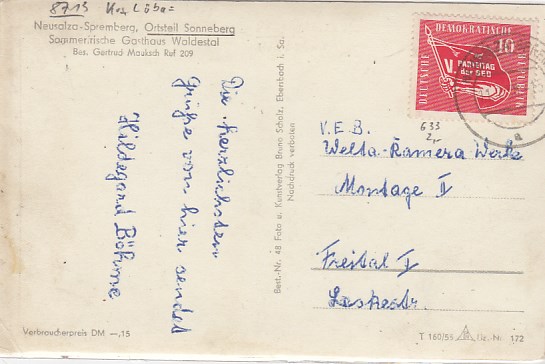 8713 Krs. Löbau
Neusalza-Spremberg, Ortsteil Sonneberg
Sommerfrische Gasthaus Waldestal
Bes. Gertrud Mauksch Ruf 209
Die herzlichsten
Grüße von hier sendet
Hildegard Böhme
Verbraucherpreis DM —,15
Best.-Nr. 48 Foto u. Kunstverlag Bruno Scholz, Ebersbach i. Sa.
Nachdruck verboten
DEUTSCHE DEMOKRATISCHE REPUBLIK
10
V. PARTEITAG
der SED
633
2,-
V.E.B.
Welta-Kamera Werke
Montage II
Freital I
Laskestr.
T 160/58 Liz.-Nr. 172